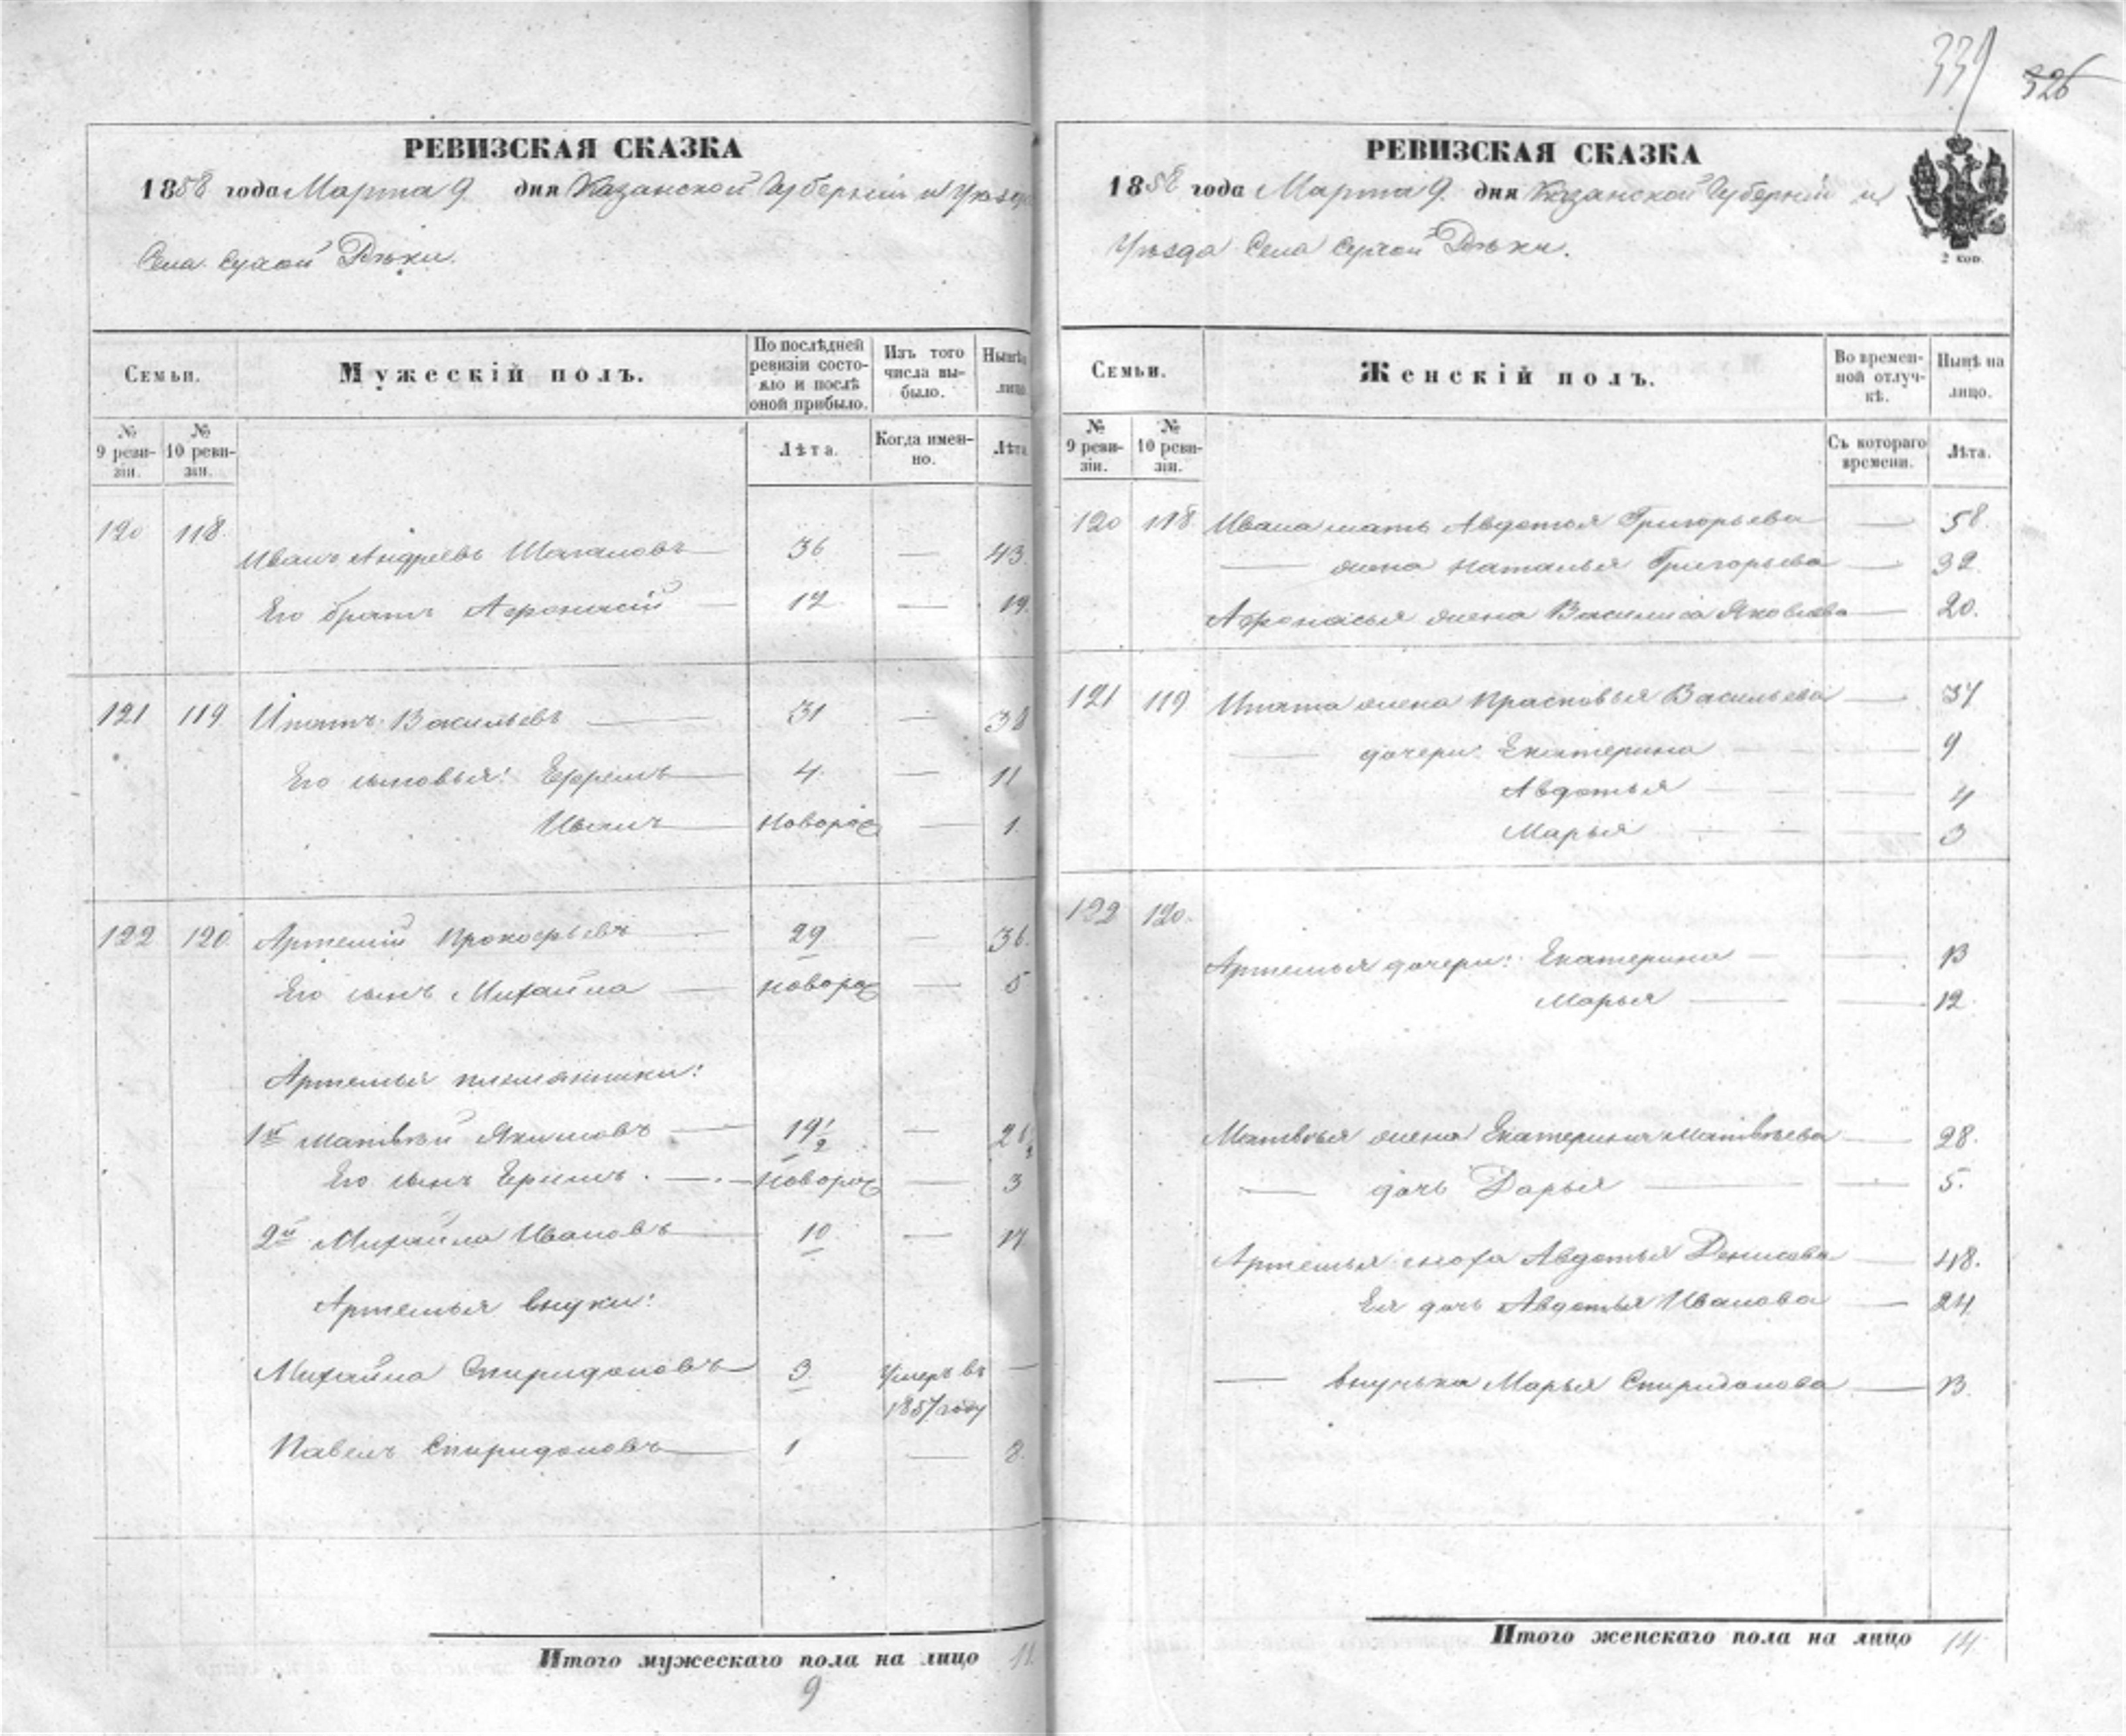 339 326
РЕВИЗСКАЯ СКАЗКА
1858 года Марта 9. дня Казанской Губерніи и Уѣзда
Села Сухой Рѣки.
Семьи. Мужескій полъ. По послѣдней ревизіи состояло и послѣ оной прибыло. Изъ того числа выбыло. Нынѣ лицо.
№ 9 ревизіи. № 10 ревизіи. Лѣта. Когда именно. Лѣта
120 118. Иванъ Андреевъ Шагаловъ — 36 — 43.
Его братъ Афонасій — 12 — 19.
121 119 Ипатъ Васильевъ — 31 — 38
Его сыновья: Ефремъ — 4 — 11
Иванъ — новорож — 1.
122 120 Артемій Прокофьевъ — 29 — 36.
Его сынъ Михайла — новорож — 5
Артемья племянники:
1й Матвѣй Якимовъ — 19½ — 26½
Его сынъ Ефимъ. — новорож — 3
2й Михайла Ивановъ — 10 — 17
Артемья внуки:
Михайла Спиридоновъ — 3. Умеръ въ —
1857 году
Павелъ Спиридоновъ — 1 — 8.
Итого мужескаго пола на лицо 11
9
РЕВИЗСКАЯ СКАЗКА
1858 года Марта 9. дня Казанской Губерніи и
Уѣзда Села Сухой Рѣки.
2 коп.
Семьи. Женскій полъ. Во временной отлучкѣ. Нынѣ на лицо.
№ 9 ревизіи. № 10 ревизіи. Съ котораго времени. Лѣта.
120 118 Ивана мать Авдотья Григорьева — 58.
— жена Наталья Григорьева — 32.
Афонасья жена Василиса Яковлева — 20.
121 119 Ипата жена Прасковья Васильева — 37
— дочери: Екатерина — 9
Авдотья — 4
Марья — 3
122 120.
Артемья дочери: Екатерина — 13
Марья — 12
Матвѣя жена Екатерина Матвѣева — 28.
— дочь Дарья — 5.
Артемья сноха Авдотья Денисова — 48.
Ея дочь Авдотья Иванова — 24
— внучька Марья Спиридонова — 13.
Итого женскаго пола на лицо 14